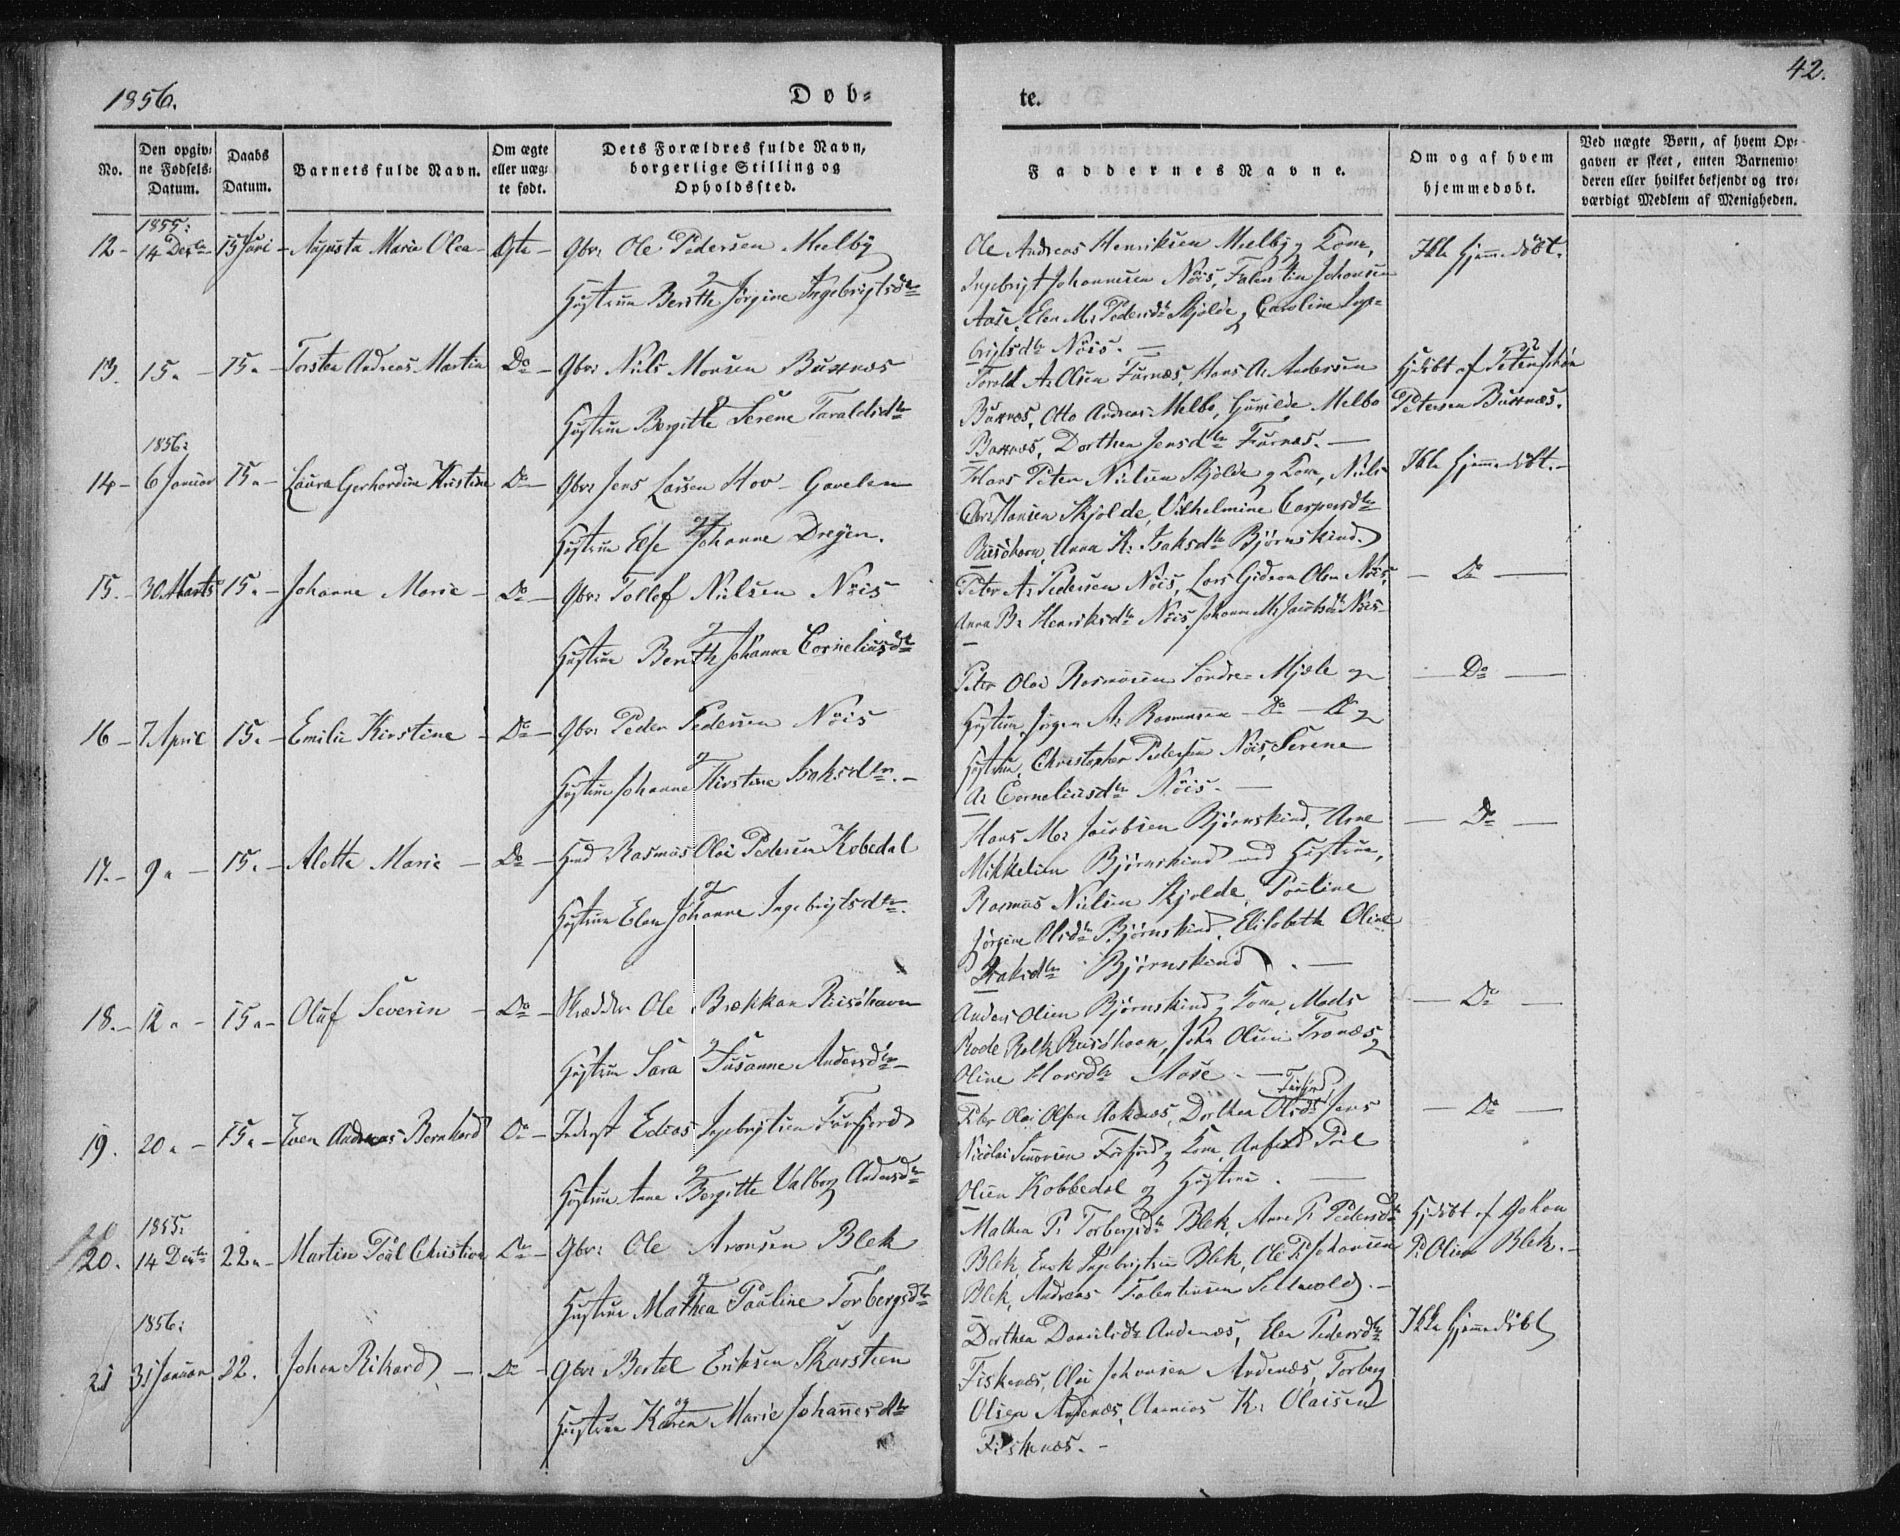 1856.
Døb-
te.
42.
No.
Den opgiv-
ne Fødsels-
Datum.
Daabs
Datum.
Barnets fulde Navn.
Om ægte
eller uæg-
te født.
Dets Forældres fulde Navn,
borgerlige Stilling og
Opholdssted.
Faddernes Navne.
Om og af hvem
hjemmedøbt.
Ved uægte Børn, af hvem Op-
gaven er skeet, enten Barnemo-
deren eller hvilket bekjendt og tro-
værdigt Medlem af Menigheden.
1855:
12 - 14 Decbr 15 Juni - Augusta Maria Olea - Ægte - Gbr: Ole Pedersen Melby
og
Hustrue Berith Jørgine Ingebrigtsdtr
Ole Andreas Henriksen Melby og Kone,
Ingebrigt Johannesen Nöis, Falentin Johansen
Aase, Elen M: Pedersdtr Skjolde og Caroline Inge-
brigtsdtr Nöis. -
Ikke hjemmedöbt.
13. 15. - 15. - Torsten Andreas Martin Do - Gbr: Niels Monsen Buxnæs
og
Hustrue Bergitte Serene Taraldsdtr
Torold A: Olsen Furnæs, Hans A: Andersen
Buxnæs, Otto Andreas Melbo, Gunilde Melbo
Buxnæs, Dorthea Jensdtr Furnæs. -
Hjdöbt af Peter Johan
Petersen Buxnæs.
1856:
14 - 6 Januar 15. - Laura Gerhardine Kristine Do - Gbr: Jens Larsen Hov - Gavelen
og
Hustrue Else Johanne Dreyer.
Hans Peter Nielsen Skjolde og Kone, Niels
Chr: Hansen Skjolde, Vilhelmine Caspersdtr
Riisöhavn, Anna K: Isaksdtr Bjørnskind.
Ikke hjemmedöbt. -
15. - 30 Marts 15. - Johanne Marie - Do - Gbr: Tollef Nielsen Nöis
og
Hustrue Berith Johanne Corneliusdtr
Peter A: Pedersen Nöis, Lars Gideon Olsen Nöis,
Anna B: Henriksdtr Nöis, Johanne M: Jacobsdtr Nöis -
- Do -
16 - 7 April 15. - Emilie Kirstine - Do - Gbr: Peder Pedersen Nöis
og
Hustrue Johanne Kirstine Isaksdtr. -
Peter Olai Rasmusen Söndre Mjele og
Hustrue, Jörgen A: Rasmusen - Do - Do og
Hustrue, Christopher Pedersen Nöis, Serene
A: Corneliusdtr Nöis. -
- Do -
17. - 9 " - 15. - Alette Marie - Do - Hmd Rasmus Olai Pedersen Kobedal
og
Hustrue Elen Johanne Ingebrigtsdtr.
Hans M: Jacobsen Bjørnskind, Arne
Mikkelsen Bjørnskind med Hustrue,
Rasmus Nielsen Skjolde, Pauline
Jörgine Olsdtr Bjørnskind, Elisabeth Oline
Isaksdtr Bjørnskind. -
- Do -
18. - 12 " - 15 " - Oluf Severin - Do - Skrædder Ole Brækkan Riisöhavn
og
Hustrue Sara Susanne Andersdtr -
Anders Olsen Bjørnskind og Kone, Mads
Rode Riisöhavn, John Olsen Tranæs og
Oline Hansdtr Aase. -
- Do -
19. 20 " - 15 " - Even Andreas Bernhard Do - Inderst Edias Ingebrigtsen Forfjord
og
Hustrue Anne Bergitte Valborg Andersdtr
Forfjord
Peter Olai Olsen Aaknæs, Dorthea Olsdtr, Jens
Nicolai Simonsen Forfjord og Kone, Poul
Olsen Kobbedal og Hustrue. -
- Do -
1855:
20. 14 Decbr 22 " - Martin Poul Christian Do - Gbr: Ole Aronsen Blek
og
Hustrue Mathea Pauline Torbergsdtr
Mathea P: Torbergsdtr Blek, Anne P: Pedersdtr
Blek, Enok Ingebrigtsen Blek, Ole P: Johansen
Blek, Andreas Falentinsen Selnvold. -
Hjdöbt af Johan
P: Olsen Blek. -
1856:
21 31 Januar 22. Johan Rikard - Do - Gbr: Bertel Eriksen Skarstien
og
Hustrue Karen Marie Johannesdtr
Dorthea Danielsdtr Andenæs, Elen Pedersdtr
Fiskenæs, Olai Johansen Andenæs, Torberg
Olsen Andenæs, Ananias K: Olaisen
Fiskenæs. -
Ikke hjemmedöbt